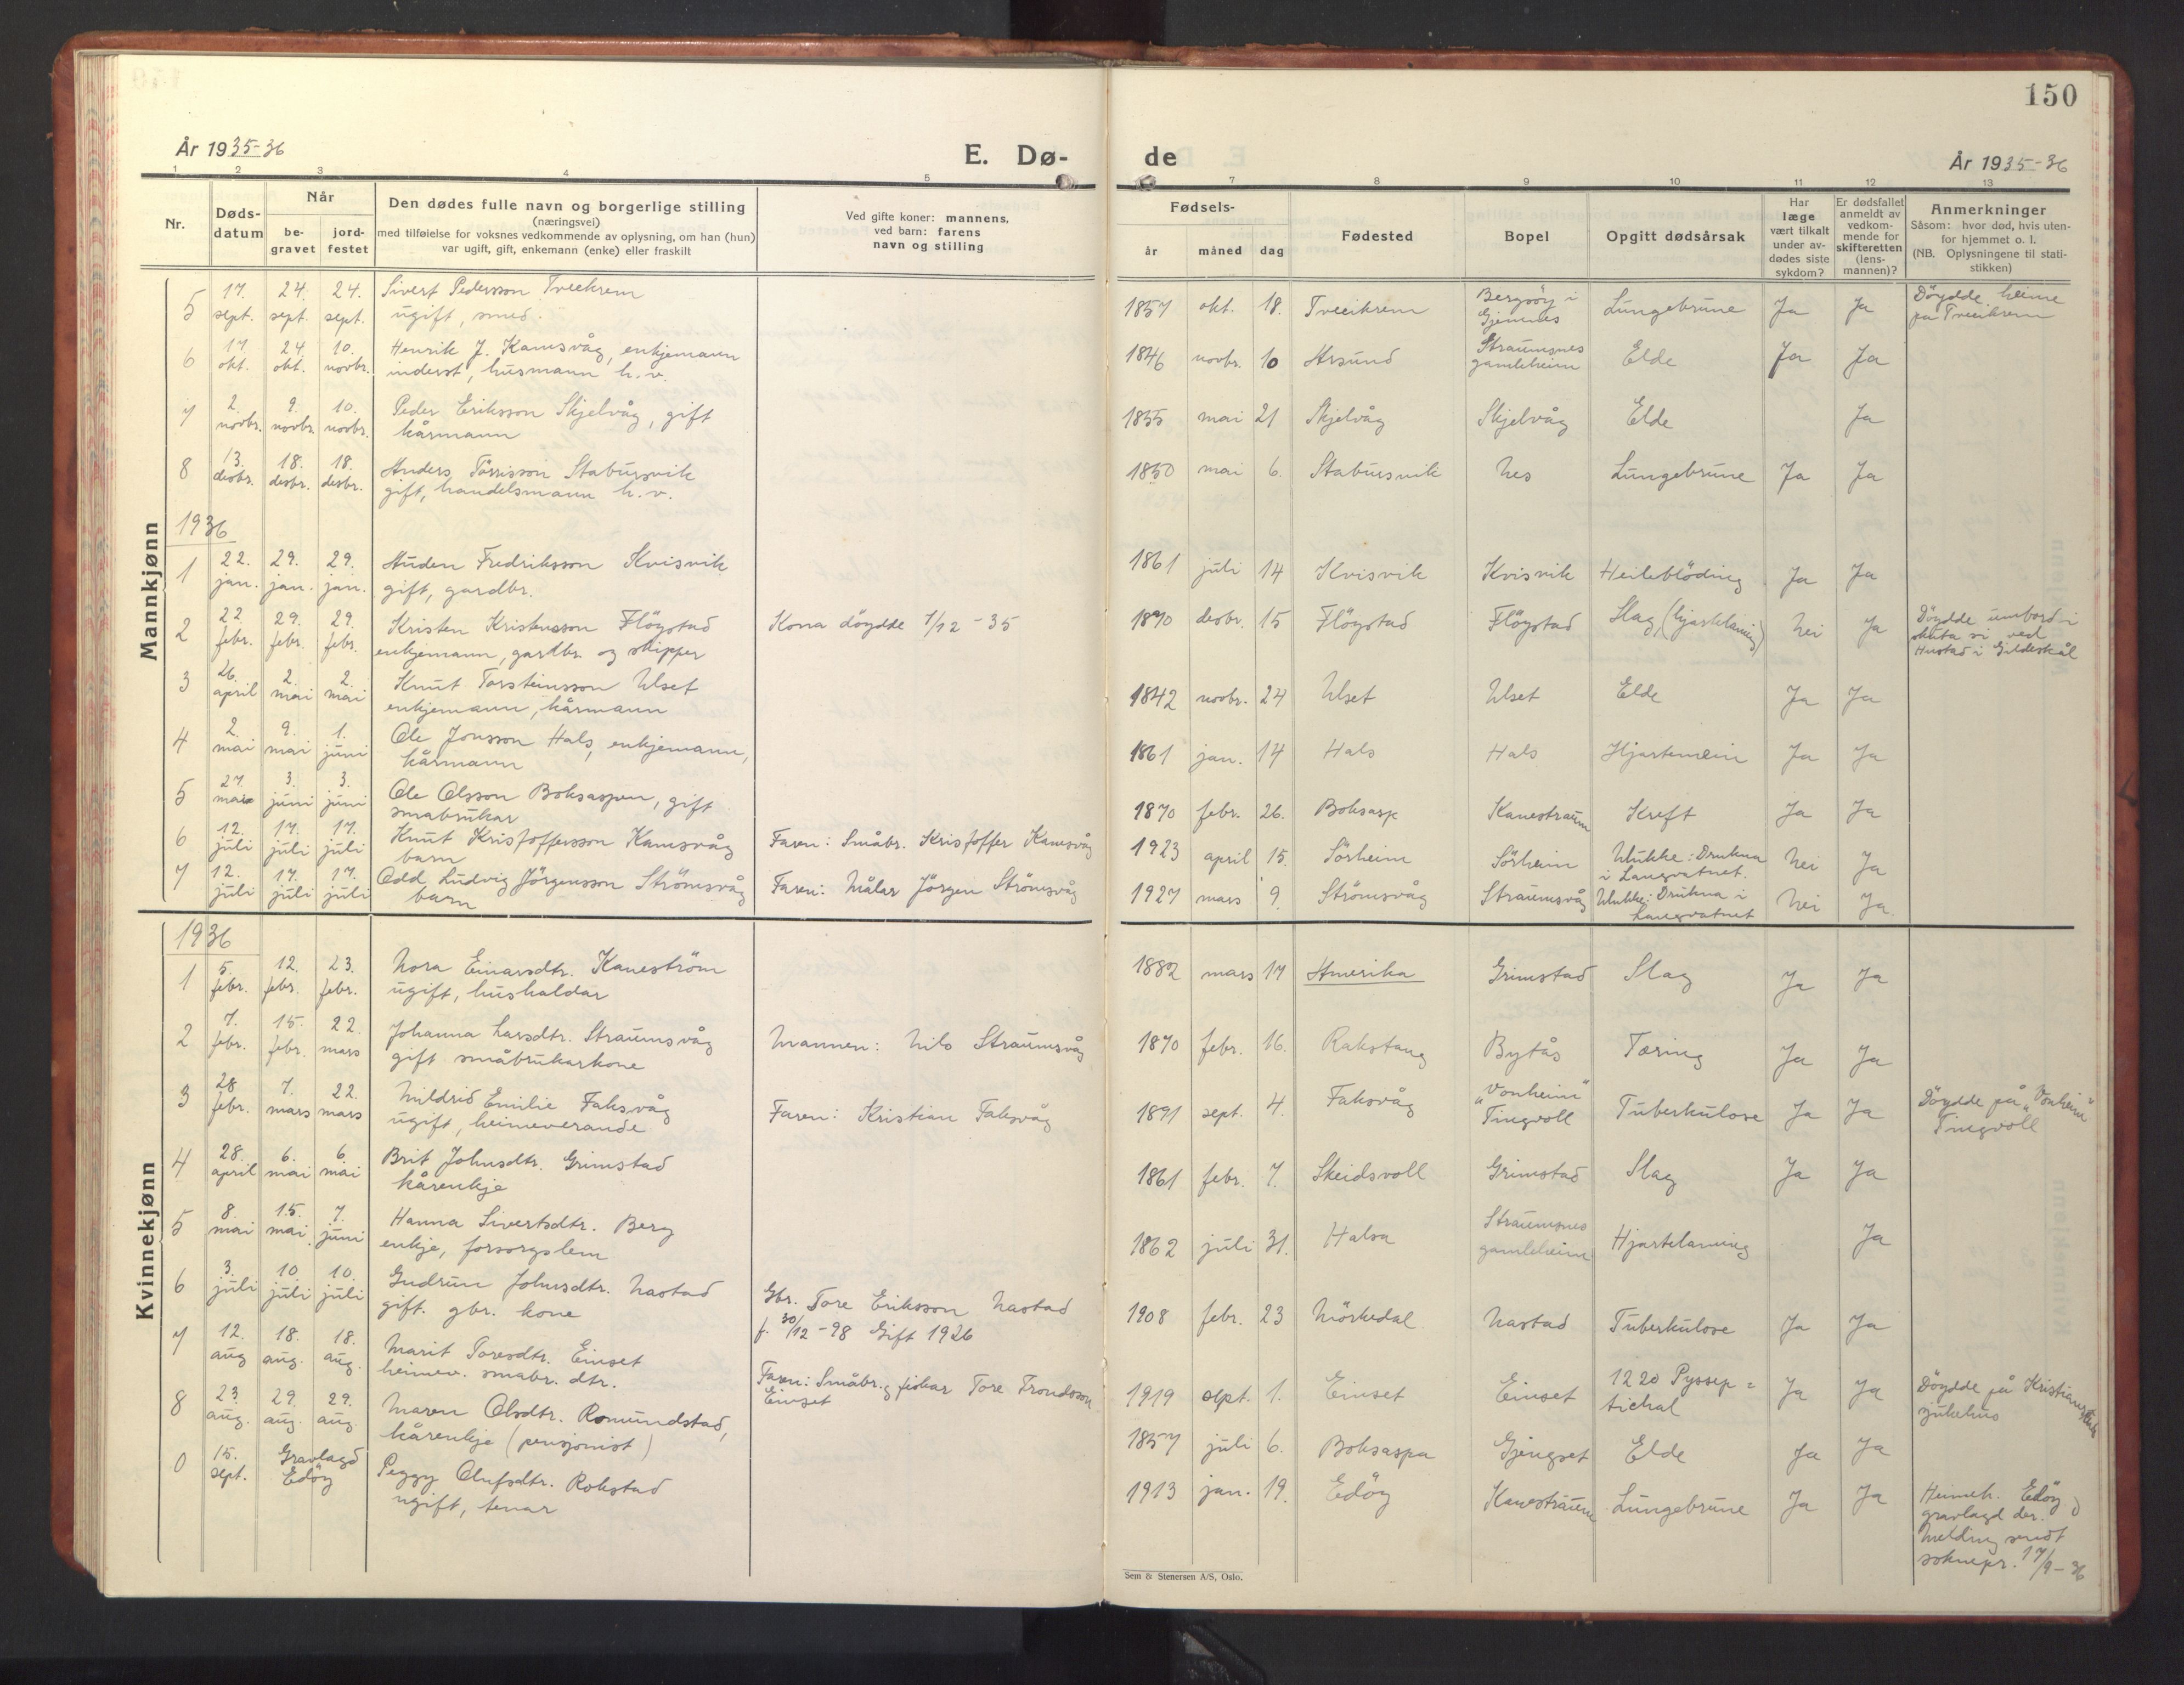 150
År 1935-36
E. Dø-
de
År 1935-36
1 2 3 4 5
7 8 9 10 11 12 13
Nr.
Døds-
datum
Når
be-
gravet
jord-
festet
Den dødes fulle navn og borgerlige stilling
(næringsvei)
med tilføielse for voksnes vedkommende av oplysning, om han (hun)
var ugift, gift, enkemann (enke) eller fraskilt
Ved gifte koner: mannens,
ved barn: farens
navn og stilling
Fødsels-
år måned dag
Fødested
Bopel
Opgitt dødsårsak
Har
læge
vært tilkalt
under av-
dødes siste
sykdom?
Er dødsfallet
anmeldt av
vedkom-
mende for
skifteretten
(lens-
mannen)?
Anmerkninger
Såsom: hvor død, hvis uten-
for hjemmet o. l.
(NB. Oplysningene til stati-
stikken)
Mannkjønn
5 17. sept. 24. sept. 24. sept. Sivert Pedersson Tveekrem
ugift, smed.
1857 okt. 18. Tveeikrem Bergsöy i
Gjemnes Lungebrune Ja Ja Döydde heime
på Tveeikrem
6 17 okt. 24 okt. 10. novbr. Henrik J. Kamsvåg, enkjemann
inderst, husmann h. v.
1846 novbr. 10 Arsund Straumsnes
gamleheim Elde Ja Ja
7 2. novbr. 9. novbr. 10. novbr. Peder Eriksson Skjelvåg, gift
kårmann
1855 mai 21 Skjelvåg Skjelvåg Elde Ja
8 13. desbr. 18. desbr. 18. desbr. Anders Tårrisson Stabursvik
gift, handelsmann h. v.
1850 mai 6. Stabursvik Nes Lungebrune Ja Ja
1936
1 22. jan. 29. jan. 29. jan. Auden Fredriksson Kvisvik
gift, gardbr.
1861 juli 14 Kvisvik Kvisvik Heileblöding Ja Ja
2 22. febr. 29. febr. 29. febr. Kristen Kristensson Flöystad
enkjemann, gardbr. og skipper
Kona döydde 7/12 - 35
1870 desbr. 15 Flöystad Flöystad Slag, (hjartelaming) Nei Ja Döydde umbord i
skuta si ved
Hustad i Gildeskål
3 26. april 2. mai 2. mai Knut Torsteinsson Ulset
enkjemann, kårmann
1842 novbr. 24 Ulset Ulset Elde Ja Ja
4 2. mai 9. mai 1. juni Ole Jonsson Hals, enkjemann,
kårmann
1861 jan. 14 Hals Hals Hjartemein Ja Ja
5 27. mai 3. juni 3. juni Ole Olsson Boksaspen, gift
småbrukar
1870 febr. 26. Boksasp Kanestraum Kreft Ja Ja
6 12. juli 17. juli 17. juli Knut Kristoffersson Kamsvåg
barn
Faren: Småbr. Kristoffer Kamsvåg
1923 april 15. Sörheim Sörheim Ulukke: Drukna
i Langvatnet. Nei Ja
7 12. juli 17. juli 17. juli Odd Ludvig Jörgensson Strömsvåg
barn
Faren: Målar Jörgen Strömsvåg
1927 mars 9. Strömsvåg Straumsvåg Ulukke: Drukna i
Langvatnet Nei Ja
Kvinnekjønn
1936
1 5. febr. 12. febr. 23. febr. Nora Einarsdtr. Kaneström
ugift, hushaldar
1882 mars 17 Amerika Grimstad Slag Ja Ja
2 7. febr. 15. febr. 22. mars Johanna Larsdtr. Straumsvåg
gift småbrukarkone
Mannen: Nils Straumsvåg
1870 febr. 16. Rakstang Bytås Tæring Ja Ja
3 28 febr. 7. mars 22. mars Mildrid Emilie Faksvåg
ugift, heimeverande
Faren: Kristian Faksvåg
1891 sept. 4. Faksvåg "Vonheim"
Tingvoll Tuberkulose Ja Ja Döydde på "Vonheim"
Tingvoll
4 28. april 6. mai 6. mai Brit Johnsdtr. Grimstad
kårenkje
1861 febr. 7. Skeidsvoll Grimstad Slag Ja Ja
5 8. mai 15. mai 7. juni Hanna Sivertsdtr. Berg
enkje, forsorgslem
1862 juli 31. Halsa Straumsnes
gamleheim Hjartelaming Ja
6 3. juli 10 juli 10. juli Gudrun Johnsdtr. Nastad
gift. gbr. kone
Gbr. Tore Eriksson Nastad
f. 30/12 - 98 Gift 1926
1908 febr. 23 Mörkedal Nastad Tuberkulose Ja Ja
7 12. aug 18. aug. 18. aug. Marit Toresdtr. Einset
heimev. småbr. dtr.
Faren: Småbr. og fiskar Tore Trondsson
Einset
1919 sept. 1. Einset Einset 1220 Pyssep=
tichal Ja Ja Döydde på Kristiansund
sjukehus
8 23. aug. 29. aug. 29. aug Maren Olsdtr. Romundstad,
kårenkje (pensjonist)
1857 juli 6. Boksaspa Gjengset Elde Ja Ja
0 15. sept. Gravlagd
Edöy Peggy Olufsdtr. Rokstad
ugift, tenar
1913 jan. 19. Edöy Kanestraum Lungebrune Ja Ja Heimeh. Edöy
gravlagd der.
Melding sendt
soknepr. 17/9 - 36
Sem & Stenersen A/S, Oslo.